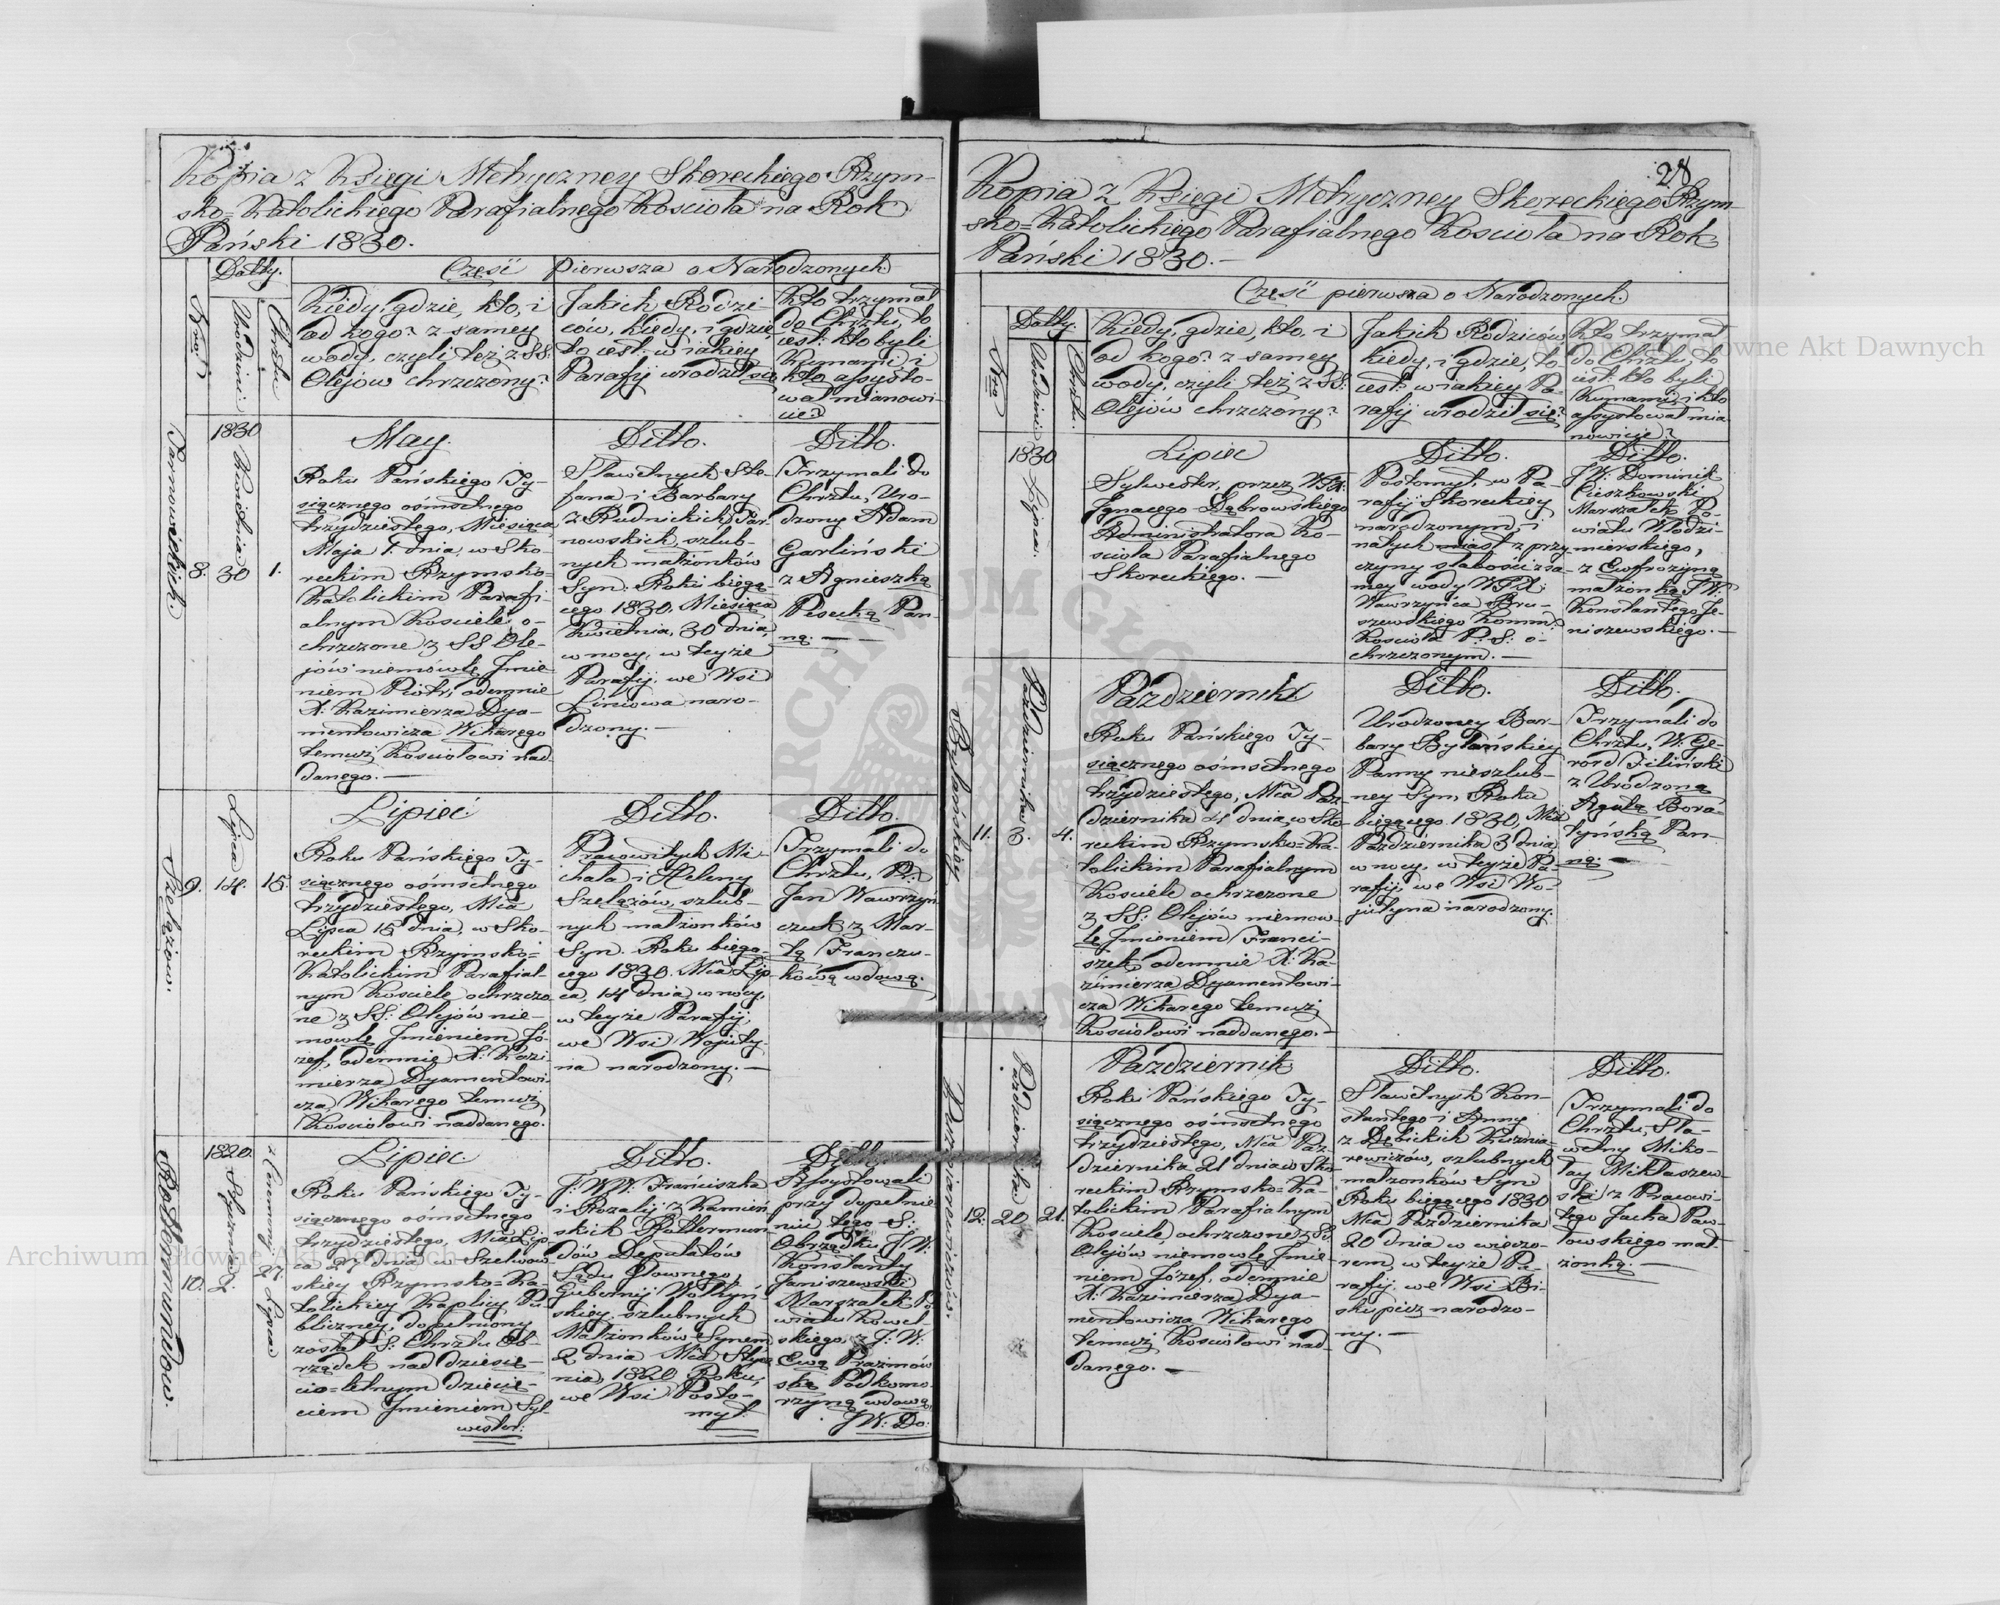 Kopia z Księgi Metryczney Skoreckiego Rzym-
sko=Katolickiego Parafialnego Kosciola na Rok
Pański 1830.
Datty.
Część pierwsza o Narodzonych.
Nro
Urodzin:
Chrztu:
Kiedy, gdzie, kto, i
od kogo? z samey
wody, czyli też z SS.
Olejow chrzczony?
Jakich Rodzi-
ców, kiedy, i gdzie,
to iest: w iakiey
Parafij urodził się
Kto trzymał
do Chrztu, to
iest: kto byli
Kumami, i
kto assysto-
wał mianowi-
cie?
Tarnowskich.
8.
1830 Kwietnia
30
1.
May.
Roku Pańskiego Ty-
siącznego ośmsetnego
trzydziestego, Miesiąca
Maja 1. dnia, w Sko-
reckim Rzymsko=
Katolickim Parafi-
alnym Kosciele, o-
chrzczone z SS Ole-
jów niemówlę Jmie-
niem Piotr, odemnie
X: Kazimierza Dya-
mentowicza Wikarego
temuż Kosciołowi nad-
danego. —
Ditto.
Sławetnych Ste-
fana i Barbary
z Rudnickich Tar-
nowskich, szlub-
nych małżonków
Syn. Roku biegą-
cego 1830. Miesiąca
Kwietnia, 30 dnia,
w nocy, w teyże
Parafij, we Wsi
Liniowa naro-
dzony. —
Ditto.
Trzymali do
Chrztu, Uro-
dzony Adam
Garliński
z Agnieszką
Pisecką Pan-
ną. —
Szelązow.
9.
Lipca
14.
15.
Lipiec
Roku Pańskiego Ty-
siącznego ośmsetnego
trzydziestego, Mca
Lipca 15 dnia, w Sko-
reckim Rzymsko=
Katolickim Parafial-
nym Kosciele ochrzczo-
ne z SS: Olejów nie-
mowlę Jmieniem Jó-
zef, odemnie X: Kazi-
mierza Dyamentowi-
cza, Wikarego temuż
Kosciołowi naddanego.
Ditto.
Pracowitych Mi-
chała i Heleny
Szelązów, szlub-
nych małżonków
Syn. Roku biegą-
cego 1830. Mca Lip-
ca, 14 dnia, w nocy,
w teyże Parafij,
we Wsi Wojuty-
na narodzony. —
Ditto.
Trzymali do
Chrztu, Pr:
Jan Wawrzyń
czuk z Mar-
tą Franczu-
kową wdową.
Bottermundow.
10.
1820. Stycznia
2.
z Ceremonij
27. Lipca
Lipiec.
Roku Pańskiego Ty-
siącznego ośmsetnego
trzydziestego, Mca Lip-
ca 27 dnia w Szelwow-
skiey Rzymsko=Ka-
tolickiey Kaplicy Pu-
bliczney, dopełniony
został S: Chrztu Ob-
rządek nad dziesię-
cio=letnym dziecię-
ciem Jmieniem Syl-
wester:
Ditto.
J: WW: Franciszka
i Rozalij z Kamień
skich Bottermun-
dów Deputatów
Sądu Głownego
Gubernij Wołhyń-
skiey, szlubnych
Małżonków Synem
2 dnia Mca Stycz-
nia, 1820 Roku,
we Wsi Posto-
myt.
Ditto.
Assystowali
przy dopełnie-
niu tego S:
Obrzędu, J W:
Konstanty
Janiszewski
Marszałek Po-
wiatu Kowel-
skiego, z J: W:
Ewą Prazmow-
ską Podkomo-
rzyną wdową,
J W: Do-
28
Kopia z Księgi Metryczney Skoreckiego Rzym-
sko=Katolickiego Parafialnego Kosciola na Rok
Pański 1830. —
Część pierwsza o Narodzonych.
Datty.
Nro
Urodzin:
Chrztu.
Kiedy, gdzie, kto, i
od kogo? z samey
wody, czyli też z SS:
Olejów chrzczony?
Jakich Rodziców
kiedy, i gdzie, to
iest: w iakiey Pa-
rafij urodził się?
Kto trzymał
do Chrztu, to
iest: kto byli
Kumami, i kto
assystował mia-
nowicie?
1830 Lipca.
Lipiec
Sylwester, przez WJX:
Jgnacego Dąbrowskiego
Administratora Ko-
scioła Parafialnego
Skoreckiego. —
Ditto.
Postomyt, w Pa-
rafij Skoreckiey
narodzonym, i
natych miast z przy-
czyny słabości z sa-
mey wody WJX:
Wawrzyńca Bru-
szewskiego Komm:
Kościoła P: S: o-
chrzczonym. —
Ditto.
J W: Dominik
Cieszkowski
Marszałek Po-
wiatu Włodzi-
mierskiego,
z Ewfrozyną
małżonką J W:
Konstantego Ja-
niszewskiego. —
Bylańskiey
11.
Pazdziernika
3.
4.
Pazdziernik
Roku Pańskiego Ty-
siącznego ośmsetnego
trzydziestego, Mca Paź-
dziernika 4 dnia, w Sko-
reckim Rzymsko=Ka-
tolickim Parafialnym
Kosciele ochrzczone
z SS: Olejów niemow-
lę Jmieniem Franci-
szek, odemnie X: Ka-
zimierza Dyamentowi-
cza Wikarego temuż
Kosciołowi naddanego. —
Ditto.
Urodzoney Bar-
bary Bylańskiey
Panny nieszlub-
ney Syn, Roku
biegącego 1830, Mca
Pazdziernika 3 dnia
w nocy, w teyże Pa-
rafij, we Wsi Wo-
jutyna narodzony.
Ditto.
Trzymali do
Chrztu, W: Ge-
rard Iiliński
z Urodzoną
Agatą Bora-
tyńską Pan-
ną. —
Kuzniarewiczów.
12.
Pazdziernika
20
21.
Pazdziernik
Roku Pańskiego Ty-
siącznego ośmsetnego
trzydziestego, Mca Paź-
dziernika 21 dnia w Sko-
reckim Rzymsko=Ka-
tolickim Parafialnym
Kosciele ochrzczone z SS
Olejów niemowlę Jmie-
niem Józef, odemnie
X: Kazimierza Dya-
mentowicza Wikarego
temuż Kosciołowi nad-
danego. —
Ditto.
Sławetnych Kon-
stantego i Anny
z Dębickich Kuznia-
rewiczów, szlubnych
małżonków Syn
Roku biegącego 1830
Mca Pazdziernika
20 dnia w wieczo-
rem, w teyże Pa-
rafij, we Wsi Bi-
skupicz narodzo-
ny. —
Ditto.
Trzymali do
Chrztu, Sła-
wetny Miko-
łay Mikłaszew-
ski z Pracowi-
tego Jacka Paw-
łowskiego mał-
żonką. —
Archiwum Główne Akt Dawnych
Archiwum Główne Akt Dawnych